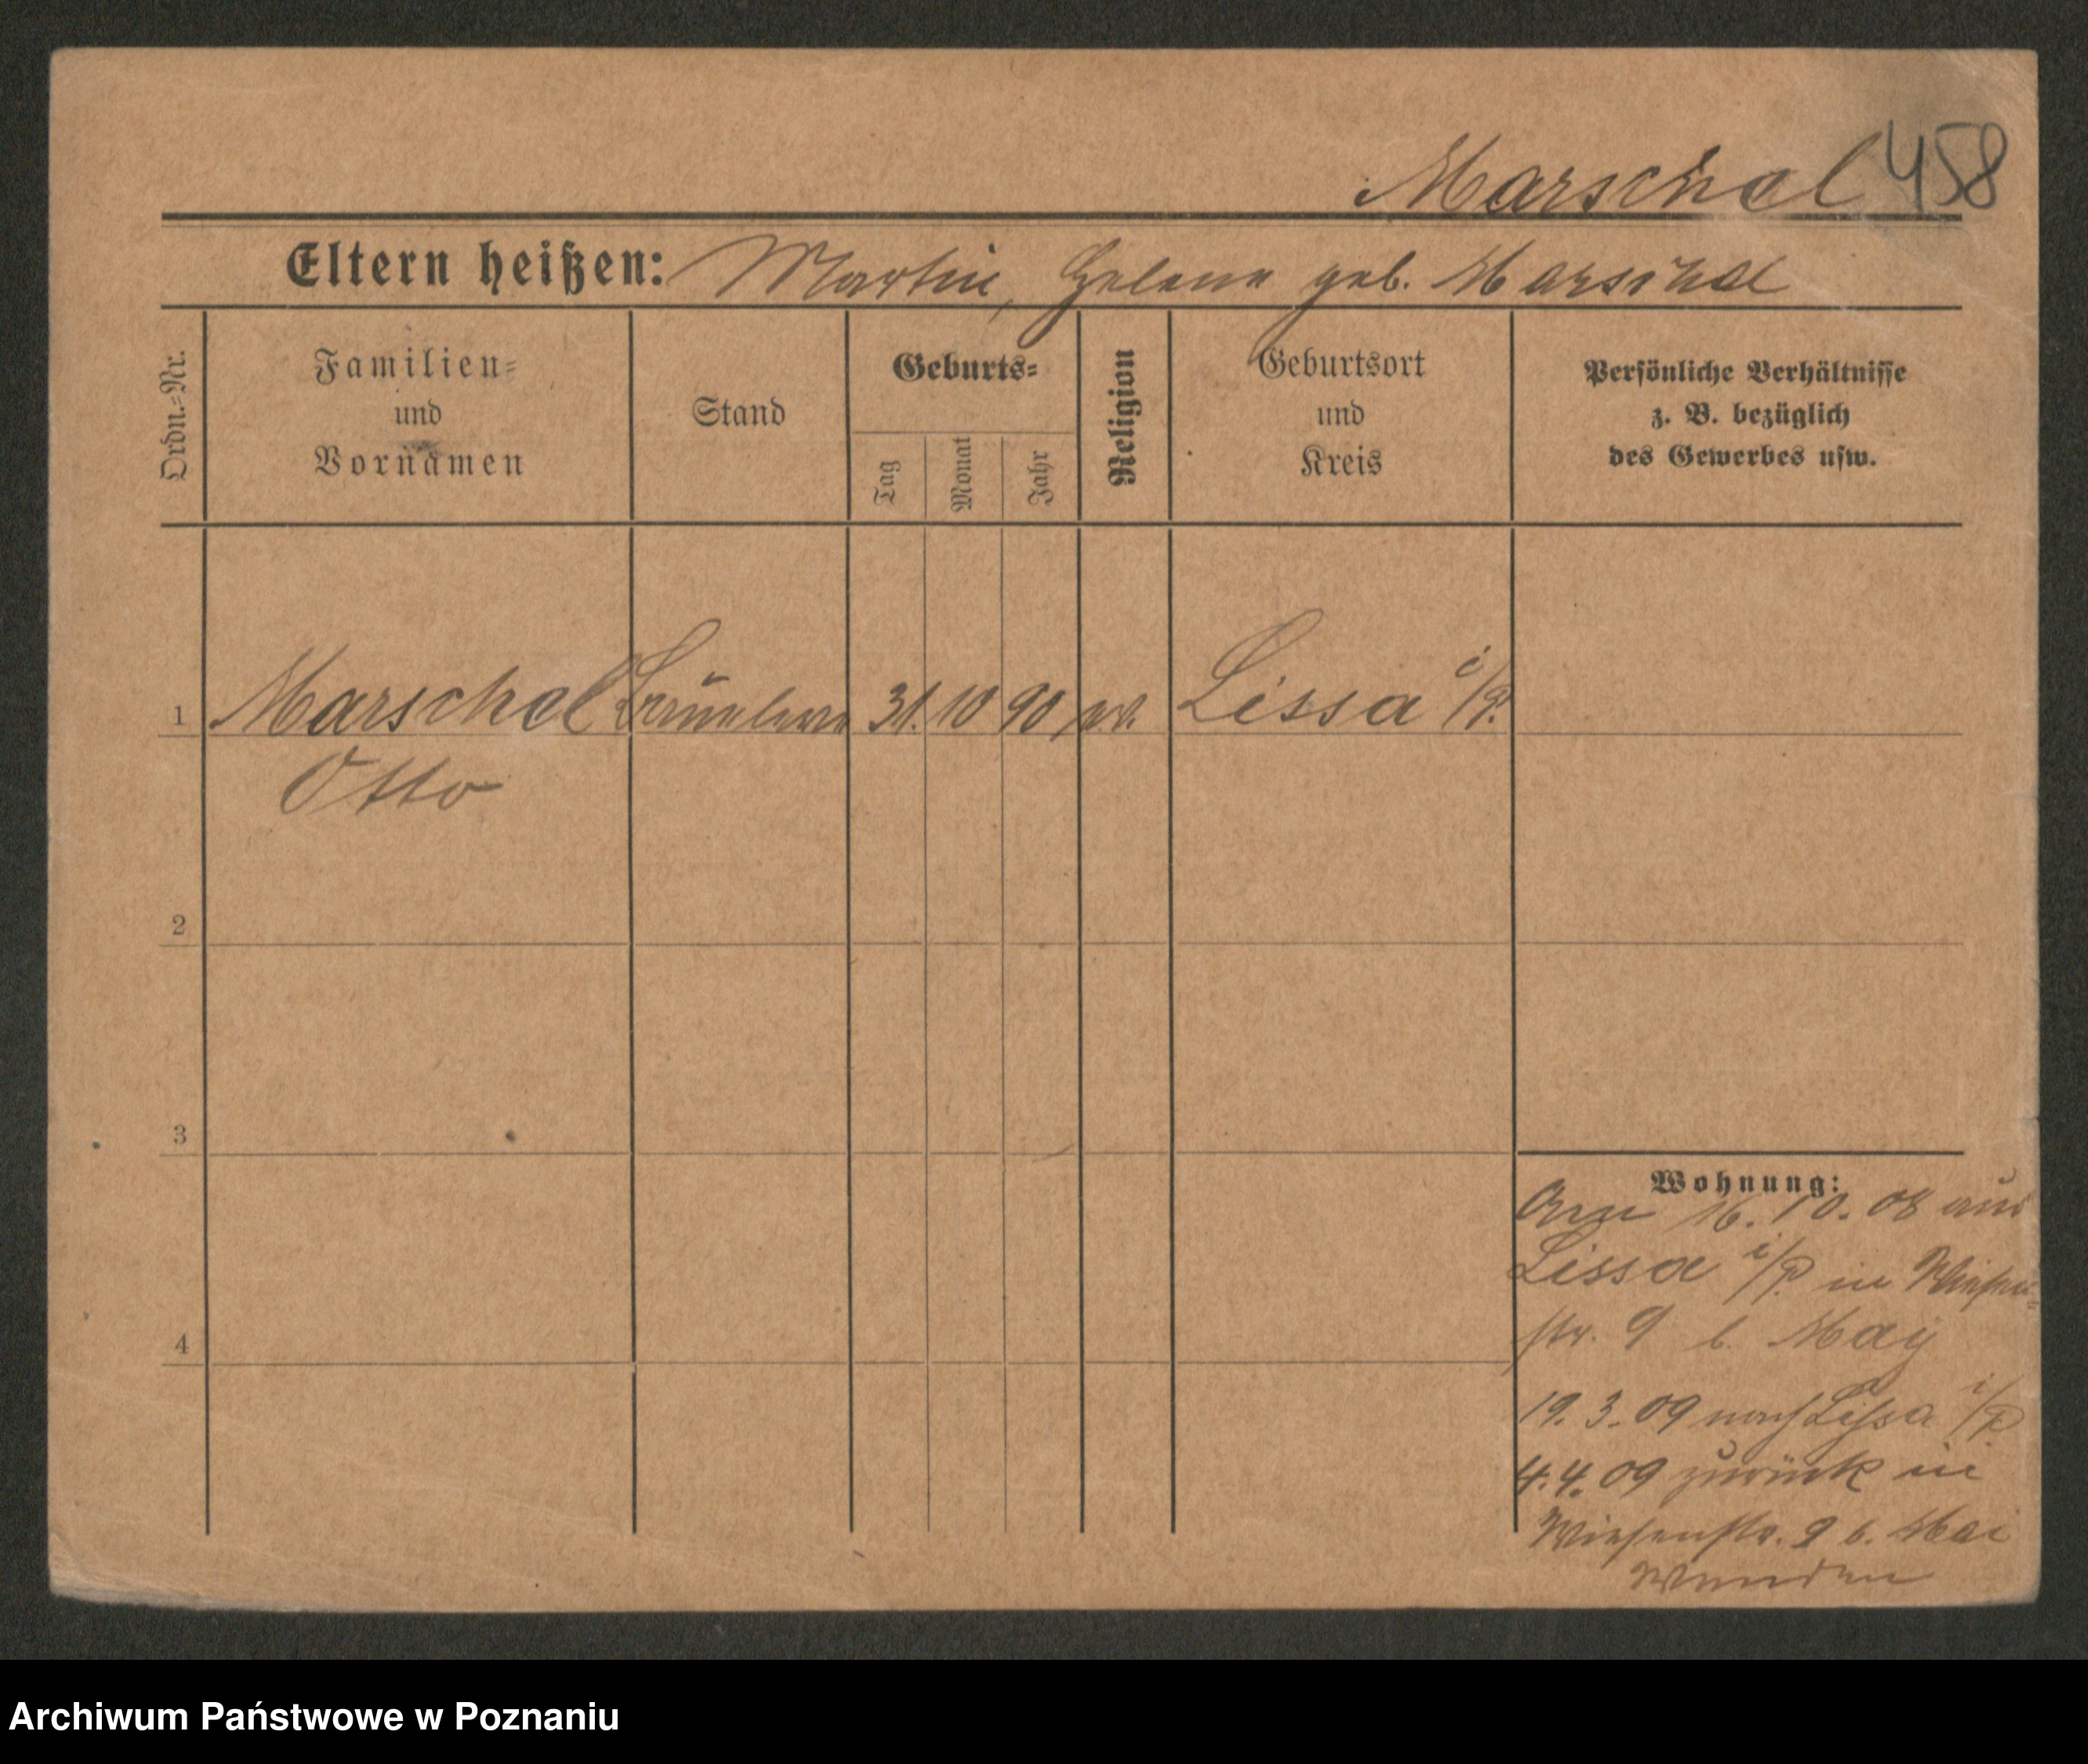 Marschel 458
Eltern heißen: Martin, Helene geb. Marschel
Ordn.-Nr.
Familien-
und
Vornamen
Stand
Geburts-
Tag
Monat
Jahr
Religion
Geburtsort
und
Kreis
Persönliche Verhältnisse
z. B. bezüglich
des Gewerbes usw.
1 Marschel 31. 10 90 ev. Lissa i/P.
Otto
2
3
4
Wohnung:
16. 10. 08 aus
Lissa i/P. in Wiesen-
str. 9 b. May
19. 3. 09 nach Lissa i/P
4. 4. 09 zurück in
Wiesenstr. 9 b. Mai